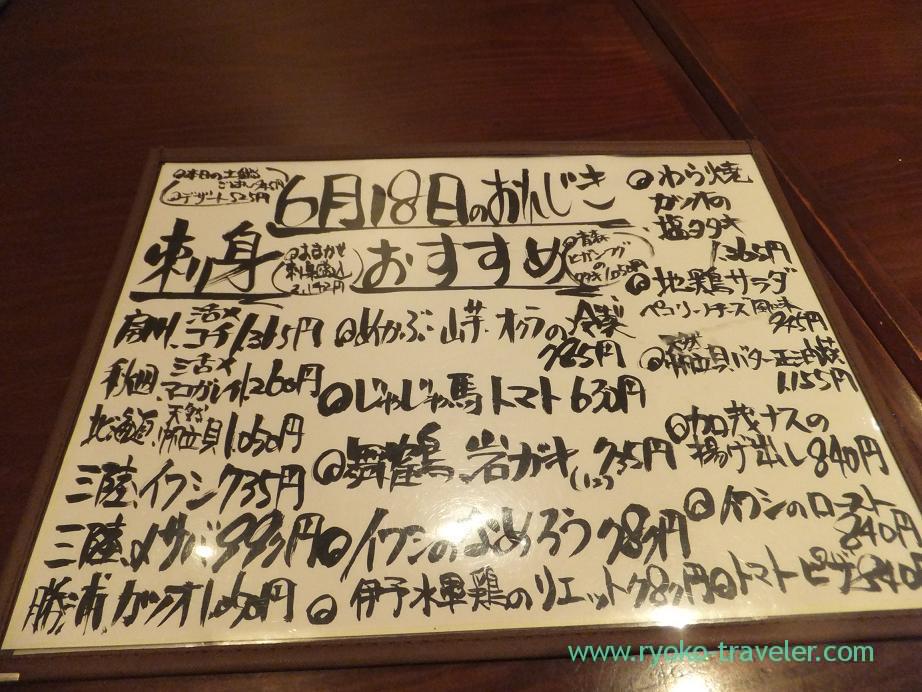 6月18日のおんじき
おすすめ
刺身
◎本日の土鍋
ごはん945円
◎デザート525円
◎おまかせ
刺身盛込
2,142円
房州、活〆
コチ1,365円
秋田、活〆
マコガレイ1,260円
北海道、天然
帆立貝1,050円
三陸、イワシ735円
三陸、〆サバ
勝浦カツオ1,050円
◎めかぶ・山芋・オクラの冷製
785円
◎じゃじゃ馬トマト630円
◎舞鶴、岩ガキ(1コ)735円
◎イワシのなめろう
◎伊予水軍鶏のリエット
◎わら焼
カツオの
塩タタキ
1,365円
◎地鶏サラダ
ペコリーノチーズ風味
945円
◎天然
帆立貝バター
1,155円
◎加茂ナスの
揚げ出し840円
◎イワシのロースト
840円
◎トマトピザ840
www.ryoko-traveler.com